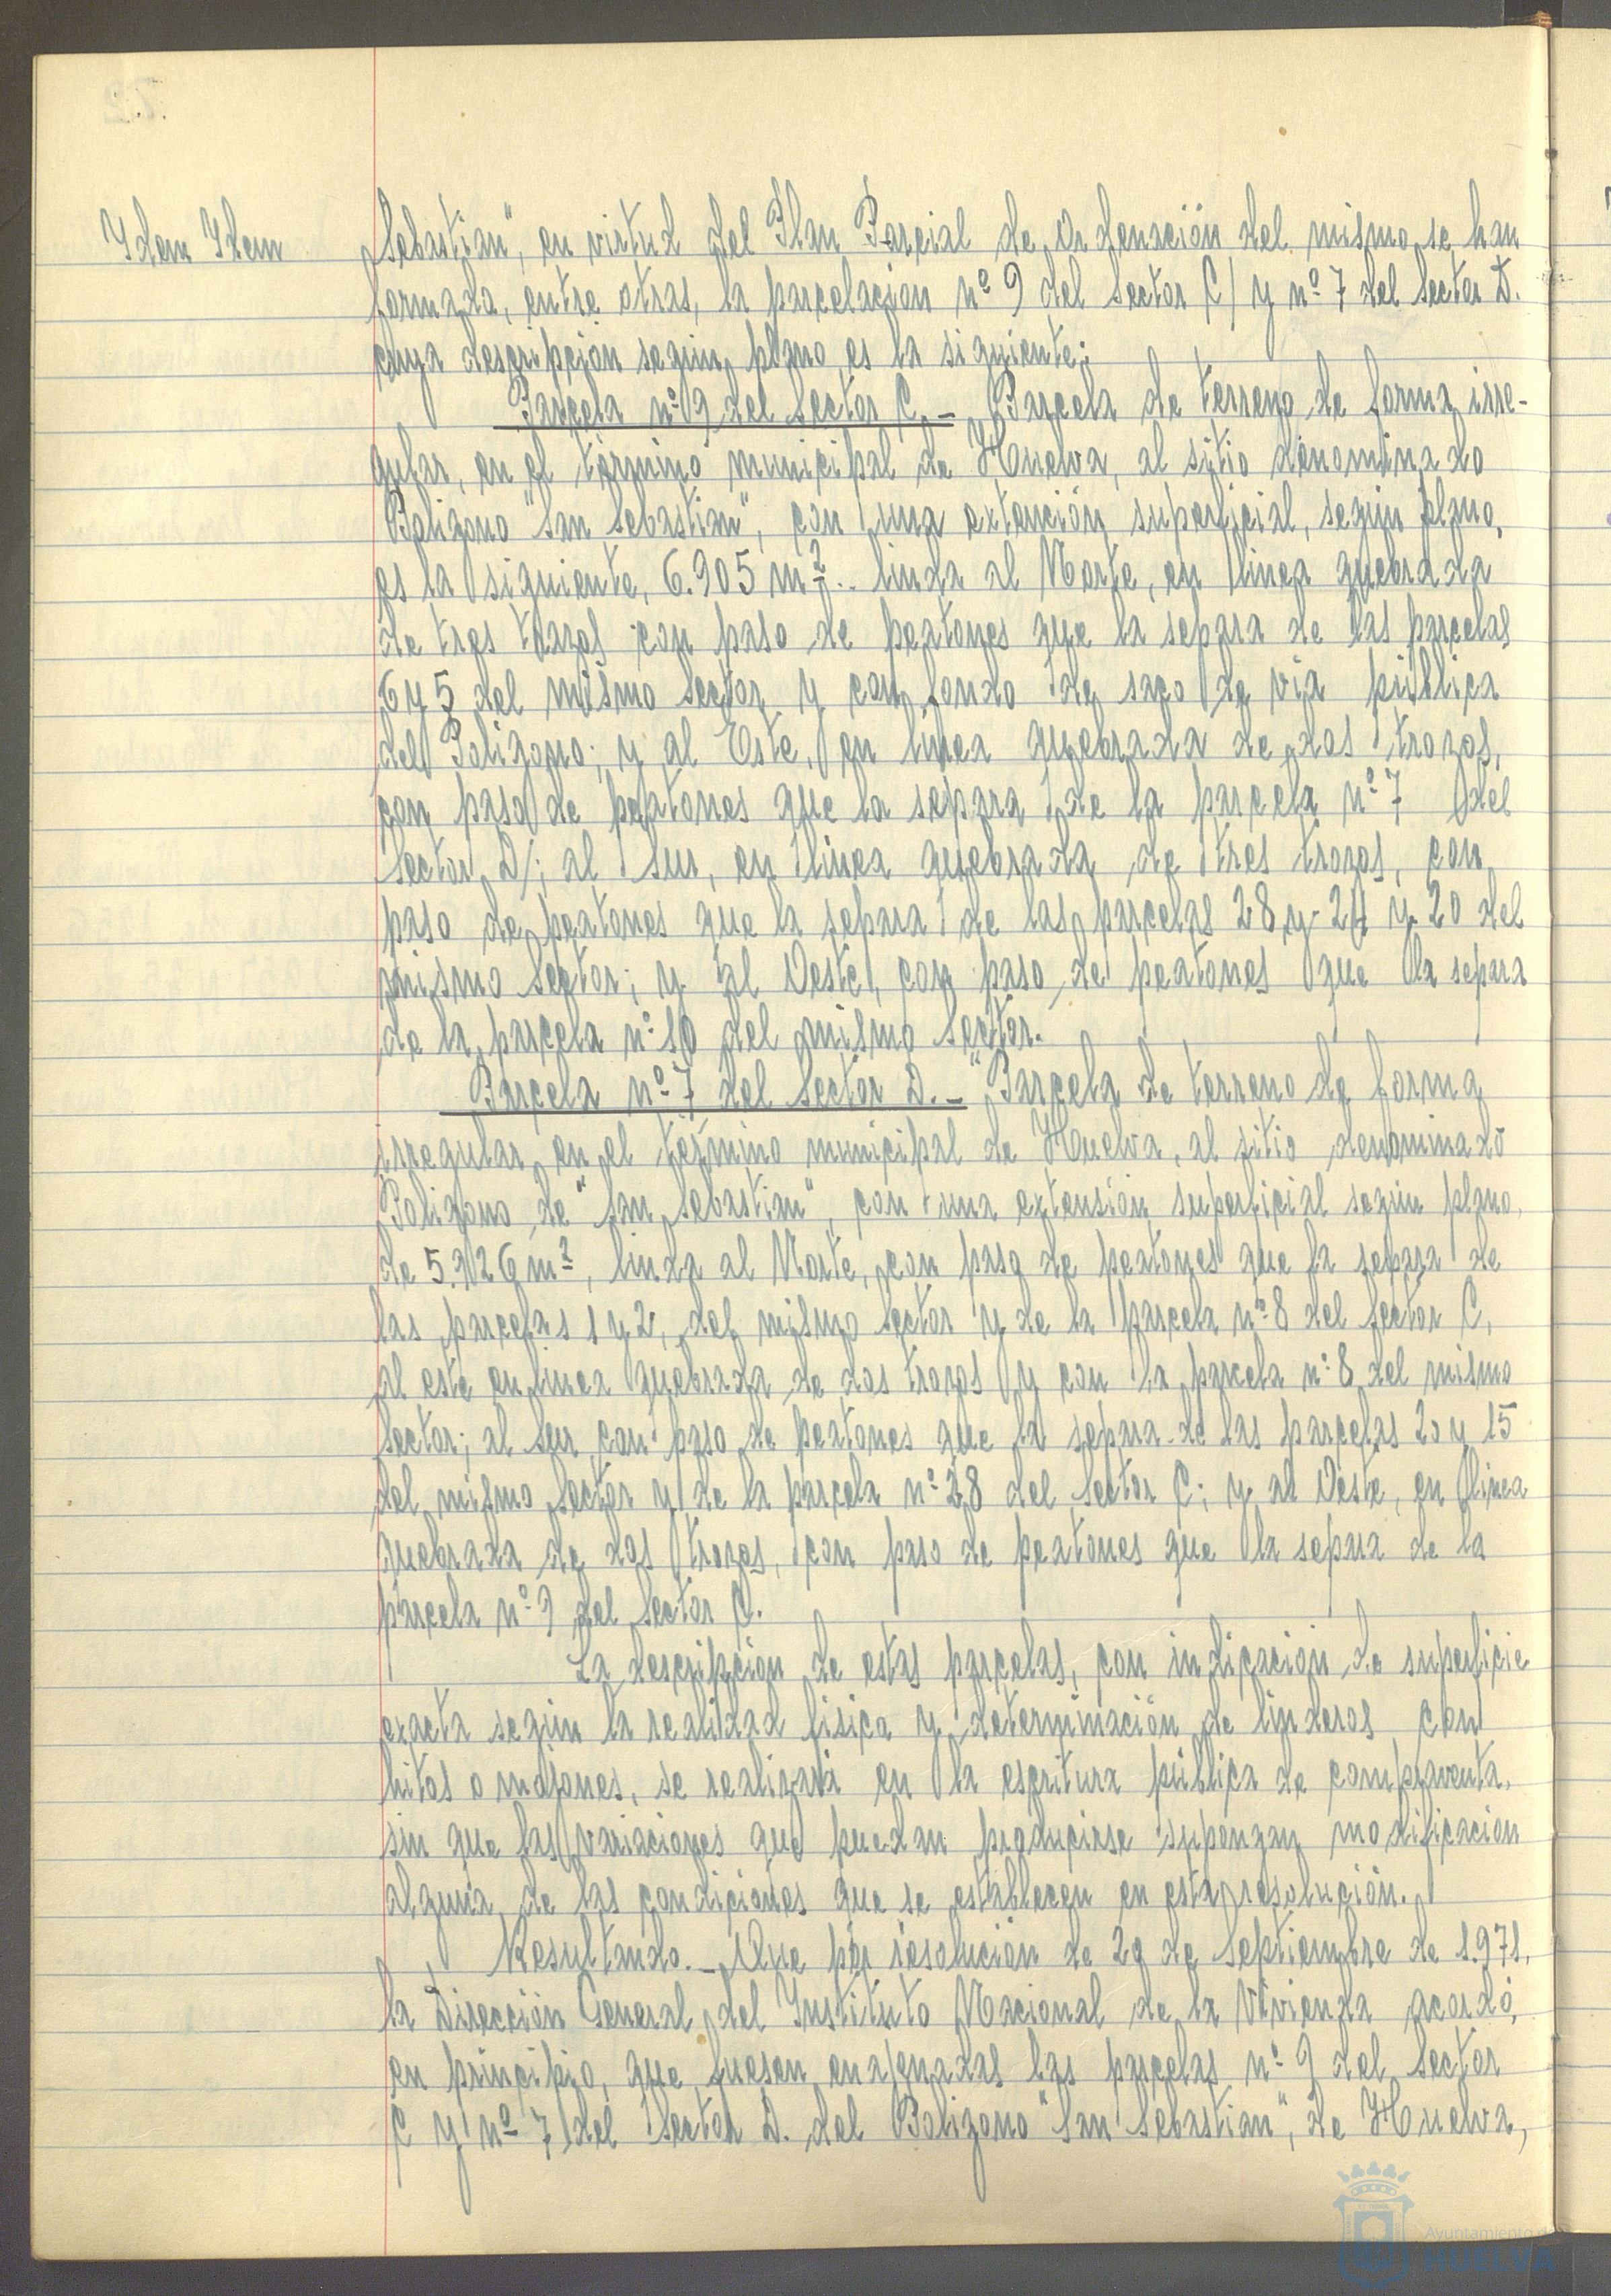 Idem Idem
Sebastian", en virtud del Plan Parcial de Ordenación del mismo se han
formada, entre otras, la parcelacion nº 9 del Sector C/ y nº 7 del Sector D.
cuya descripcion segun plano es la siguiente:
Parcela nº 9 del Sector C.- Parcela de terreno de forma irre-
gular, en el termino municipal de Huelva, al sitio denominado
Poligono "San Sebastian", con una extención superficial, segun plano,
es la siguiente, 6.905 m². linda al Norte, en linea quebrada
de tres trazos con paso de peatones que la separa de las parcelas
6 y 5 del mismo Sector y con fondo de saco de via pública
del Poligono; y al Este, en linea quebrada de dos trozos,
con paso de peatones que la separa de la parcela nº 7 del
Sector D/; al Sur, en linea quebrada de tres trozos, con
paso de peatones que la separa de las parcelas 28 y 24 y 20 del
mismo Sector; y al Oeste, con paso de peatones que la separa
de la parcela nº 10 del mismo Sector.
Parcela nº 7 del Sector D.- "Parcela de terreno de forma
irregular en el termino municipal de Huelva, al sitio denominado
Poligono de "San Sebastian", con una extensión superficial segun plano,
de 5.926 m², linda al Norte, con paso de peatones que la separa de
las parcelas 1 y 2, del mismo Sector y de la parcela nº 8 del Sector C,
al este en linea quebrada de dos trozos y con la parcela nº 8 del mismo
Sector; al Sur con paso de peatones que la separa de las parcelas 20 y 15
del mismo Sector y de la parcela nº 28 del Sector C; y al Oeste, en linea
quebrada de dos trozos, con paso de peatones que la separa de la
parcela nº 9 del Sector C.
La descripcion de estas parcelas, con indicacion de superficie
exacta segun la realidad fisica y determinación de linderos con
hitos o mojones, se realizará en la escritura pública de compraventa,
sin que las variaciones que puedan producirse supongan modificacion
alguna de las condiciones que se establecen en esta resolución.
Resultando.- Que por resolución de 29 de Septiembre de 1.971,
la Dirección General del Instituto Nacional de la Vivienda acordó,
en principio, que fuesen enajenadas las parcelas nº 9 del Sector
C y nº 7 del Sector D. del Poligono "San Sebastian", de Huelva,
Ayuntamiento de
HUELVA